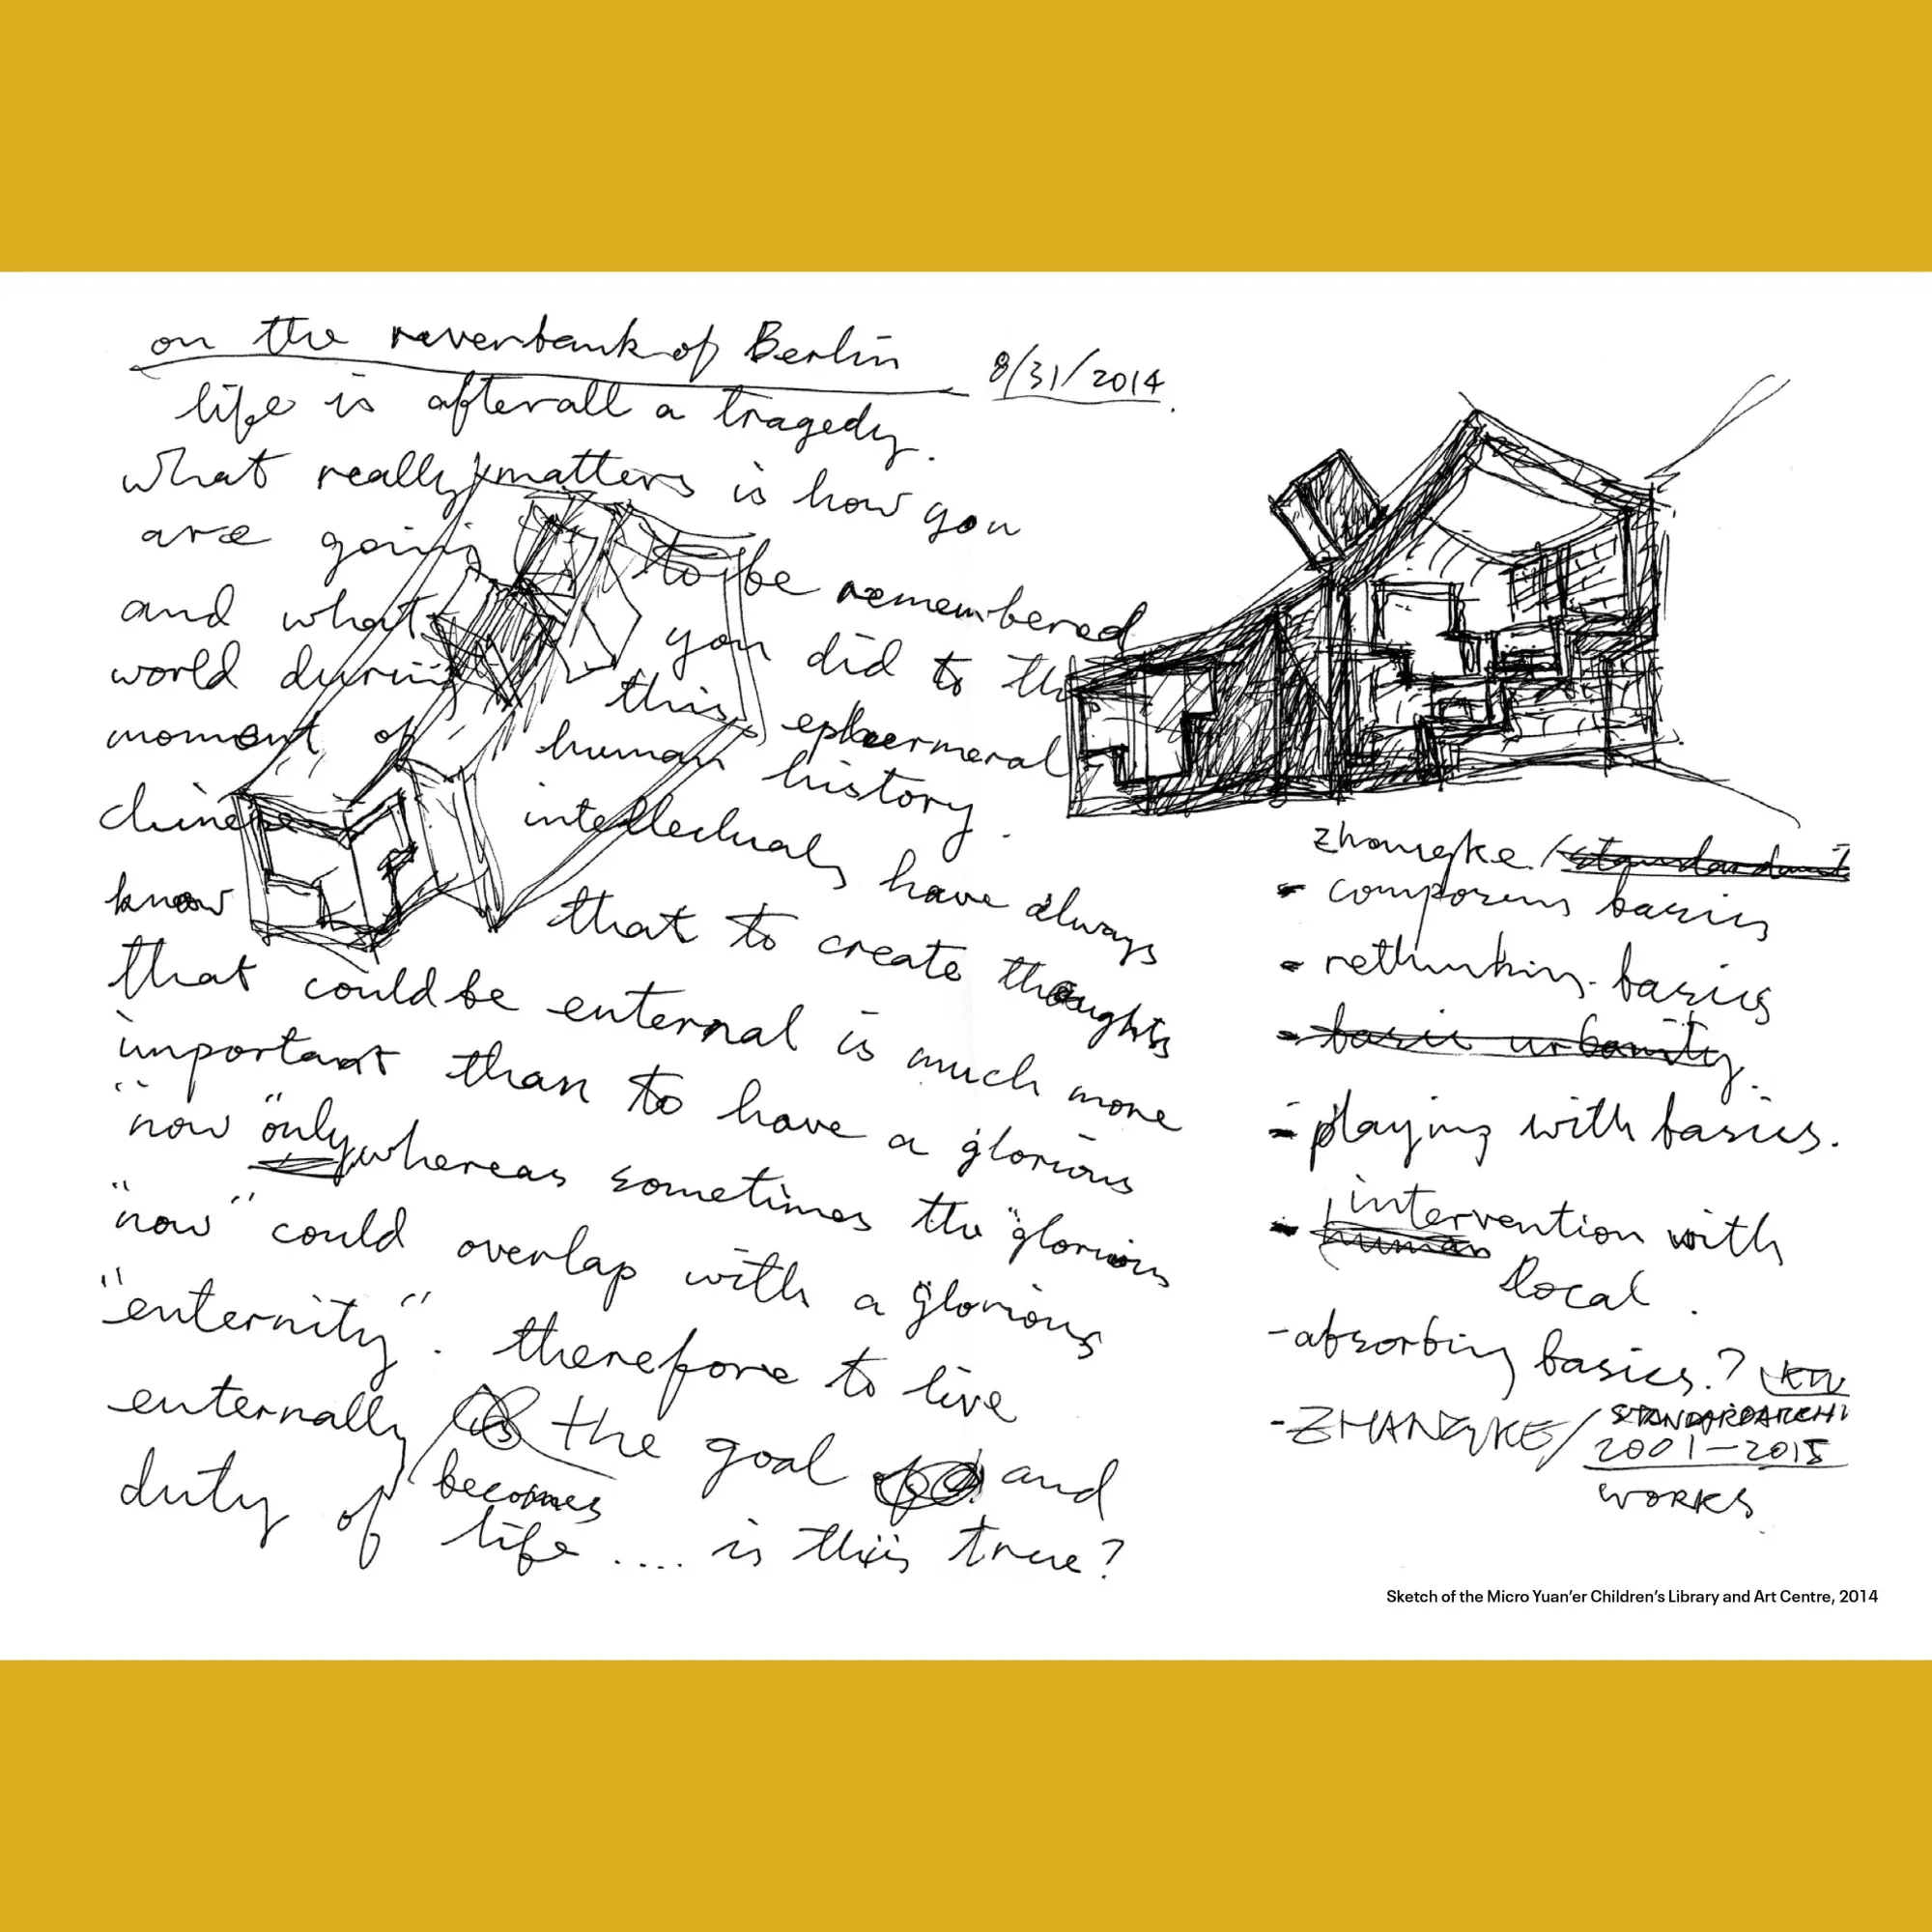 on the reverbank of Berlin
8/31/2014.
life is afterall a tragedy.
what really matters is how you
are going to be remembered
and what you did to the
world during this ephermeral
moment of human history.
chinese intellectuals have always
know that to create thoughts
that could be enternal is much more
important than to have a glorious
"now" only whereas sometimes the "glorious
"now" could overlap with a glorious
"enternity". therefore to live
enternally becomes the goal and
duty of life .... is this true?
zhangke /
- composing basics
- rethinking basics
- basic urbanity.
- playing with basics.
- intervention with
local.
- absorbing basics.?
- ZHANGKE/ STANDARDARCHI
2001-2015
WORKS
Sketch of the Micro Yuan'er Children's Library and Art Centre, 2014